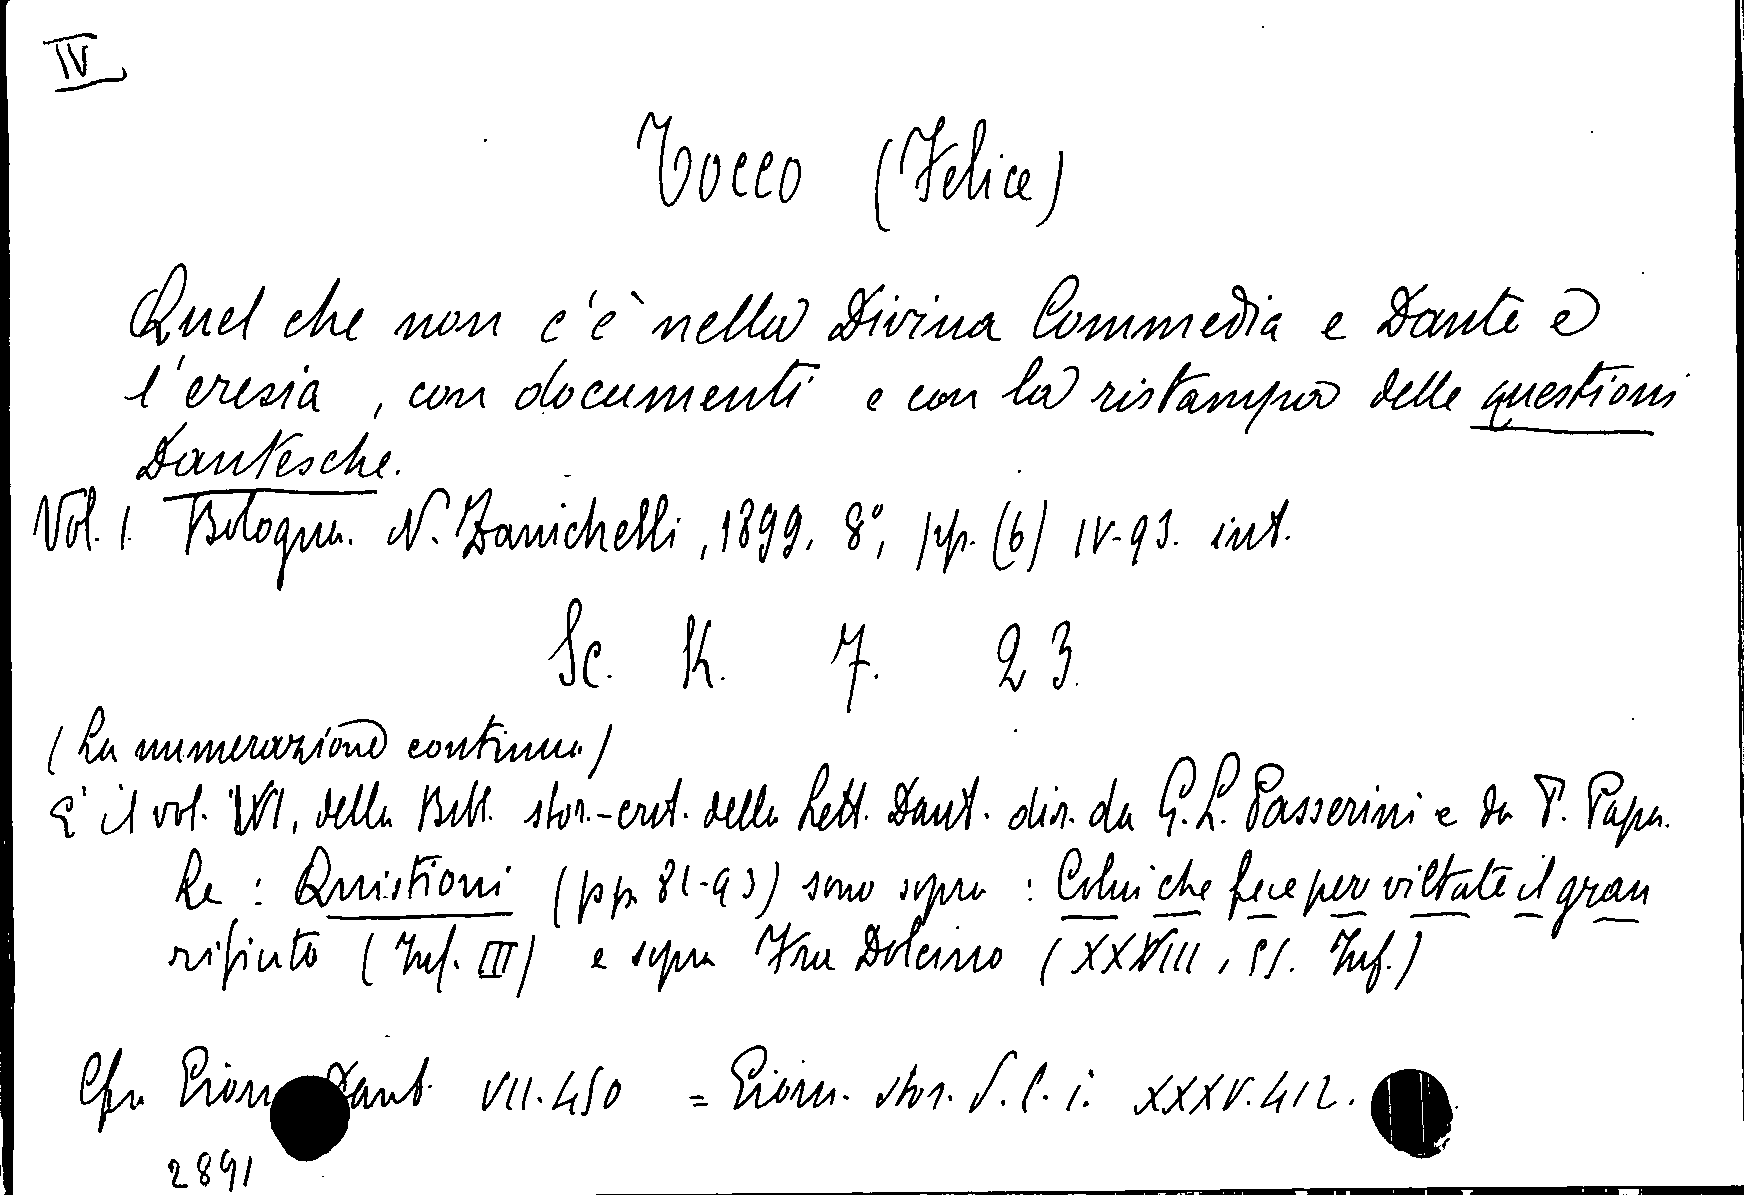 IV
Tocco (Felice)
Quel che non c'è nella Divina Commedia e Dante e
l'eresia, con documenti e con la ristampa delle questioni
Dantesche.
Vol. 1. Bologna. N. Zanichelli, 1899. 8°, pp. (6) IV-93. int.
Sc. K. 7. 23.
(La numerazione continua)
E' il vol. VI, della Bibl. stor.-crit. della Lett. Dant. dir. da G. L. Passerini e da P. Papa.
Le: Quistioni (pp. 81-93) sono sopra: Colui che fece per viltate il gran
rifiuto (Inf. III) e sopra Fra Dolcino (XXVIII, 55. Inf.)
Cfr. Giorn. Dant. VII. 450 = Giorn. stor. d. l. i. XXXV. 412.
2891